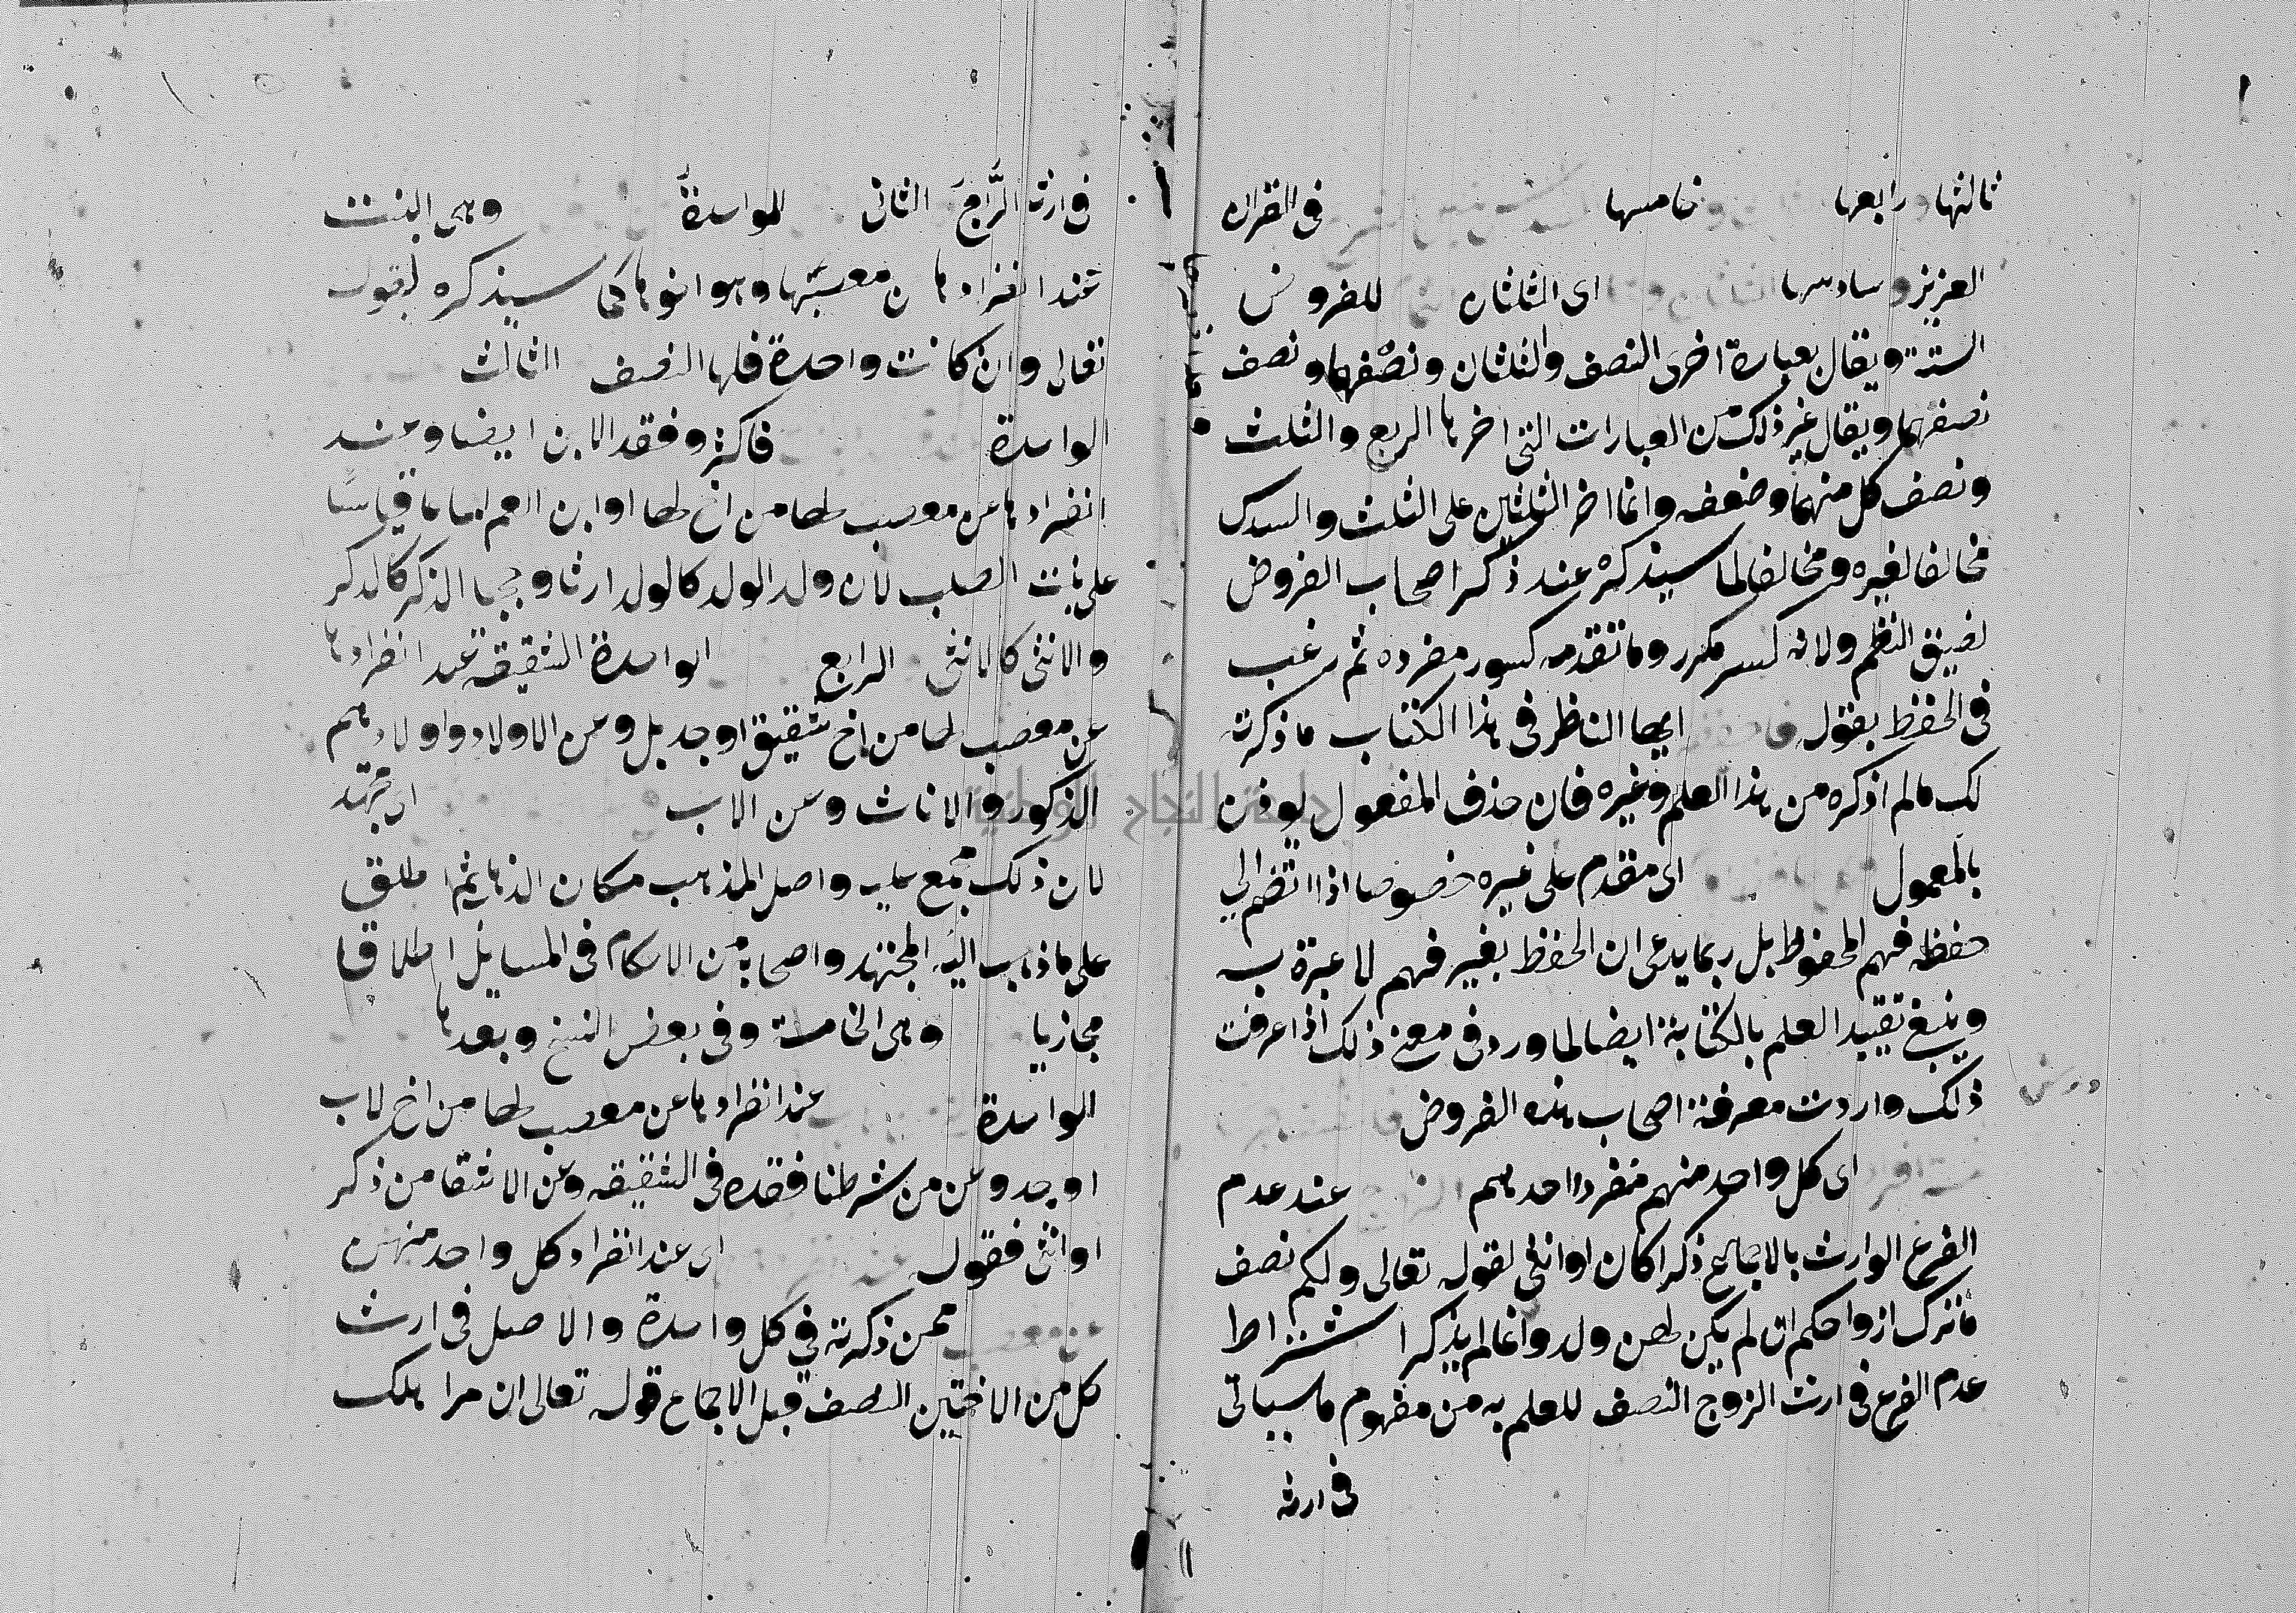 ثالثها ورابعها خامسها فى القران
العزيز وسادسها اى الثلثان للفروض
الستة ويقال بعبارة اخرى النصف والثلثان ونصفهما ونصف
نصفهما ويقال غير ذلك من العبارات التى اخرها الربع والثلث
ونصف كل منهما وضعفه وانما اخر الثلثين على الثلث والسدس
مخالفا لغيره ومخالفا لما سيذكره عند ذكر اصحاب الفروض
لضيق النظم ولانه كسر مكرر وما تقدمه كسور مفرده ثم رغب
فى الحفظ بقوله ايها الناظر فى هذا الكتاب ما ذكرته
لك مالم اذكره من هذا العلم وغيره فان حذف المفعول يوذن
بالمعمول اى مقدم على غيره خصوصا اذا انضم الى
حفظه فهم المحفوظ بل ربما يدعى ان الحفظ بغير فهم لا عبرة به
وينبغى تقييد العلم بالكتابة ايضا لما ورد فى معنى ذلك اذا عرفت
ذلك واردت معرفة اصحاب هذه الفروض
اى كل واحد منهم منفردا احدهم عند عدم
الفرع الوارث بالاجماع ذكرا كان او انثى لقوله تعالى ولكم نصف
ما ترك ازواجكم ان لم يكن لهن ولد وانما لم يذكر اشتراط
عدم الفرع فى ارث الزوج النصف للعلم به من مفهوم ما سياتى
فى ارثه
فى ارثه الربع الثانى للواحدة وهى البنت
عند انفرادها عن معصبها وهو اخوها كما سيذكره لقوله
تعالى وان كانت واحدة فلها النصف الثالث
الواحدة فاكثر وفقد الابن ايضا وعند
انفرادها عن معصب لها من اخ لها او ابن العم لها قياسا
على بنات الصلب لان ولد الولد كالولد ارثا وحجبا الذكر كالذكر
والانثى كالانثى الرابع الواحدة الشقيقة عند انفرادها
عن معصب لها من اخ شقيق او جد بل وعن الاولاد واولادهم
الذكور والاناث وعن الاب اى مجتهد
لان ذلك مجمع عليه واصل المذهب مكان الذهاب ثم اطلق
على ما ذهب اليه المجتهد واصحابه من الاحكام فى المسايل اطلاقا
مجازيا وهى الخامسة وفى بعض النسخ وبعدها
الواحدة عند انفرادها عن معصب لها من اخ لاب
او جد وعن من شرطنا فقده فى الشقيقة وعن الاشقا من ذكر
او انثى فقوله اى عند انفراد كل واحد منهن
عن معصب ممن ذكرته فى كل واحدة والاصل فى ارث
كل من الاختين النصف قبل الاجماع قوله تعالى ان امرا هلك